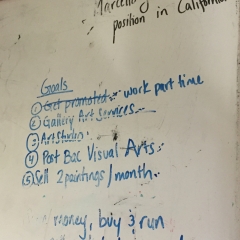 Marcello
position in California
Goals
① Get promoted work part time
② Gallery Art Services
③ Art Studios
④ Post Bac Visual Arts
⑤ Sell 2 paintings/month
money, buy 3 run